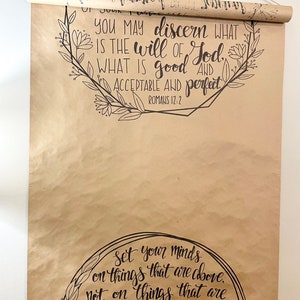 OF YOUR
YOU MAY discern WHAT
IS THE will OF God,
WHAT IS good AND
ACCEPTABLE AND perfect.
ROMANS 12:2
set your minds
on things that are above,
not on things that are